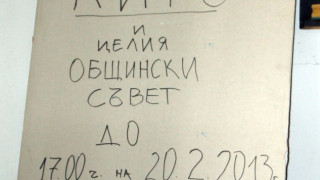 И
ЦЕЛИЯ
ОБЩИНСКИ
СЪВЕТ
ДО
17.00 ч. на 20.2.2013г.